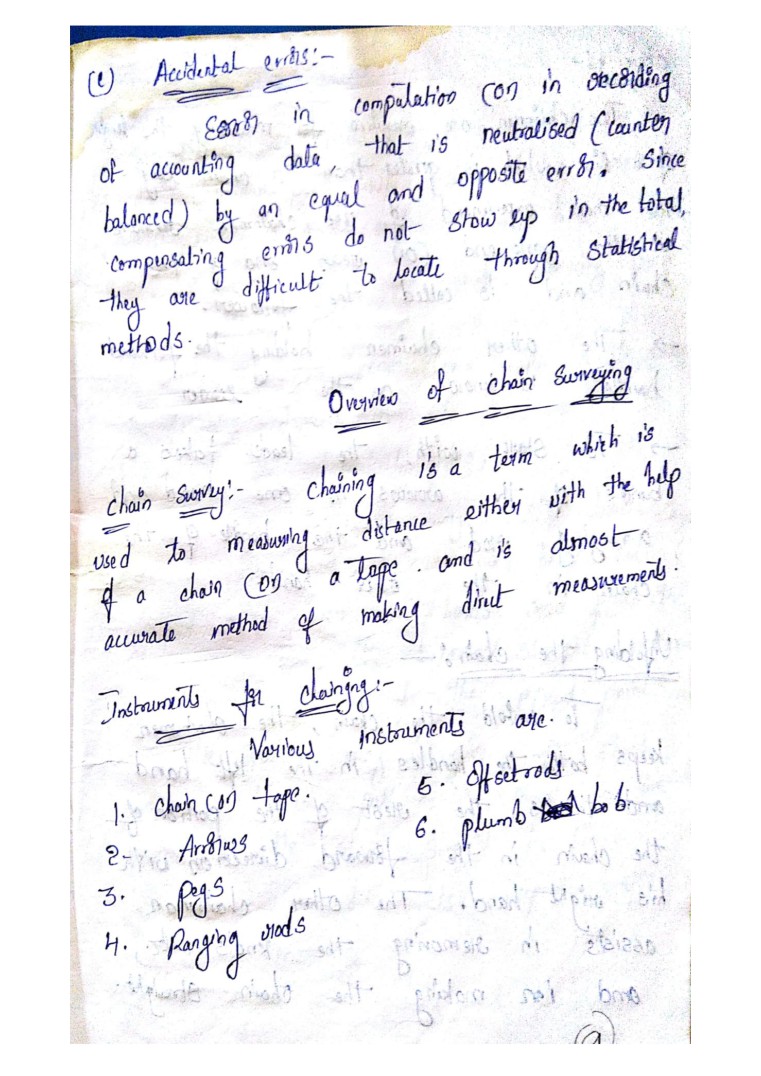 (e) Accidental errors:-
Error in computation (or) in recording
of accounting data, that is neutralised (counter
balanced) by an equal and opposite error. Since
compensating errors do not show up in the total,
they are difficult to locate through statistical
methods.
Overview of chain surveying
chain survey:- chaining is a term which is
used to measuring distance either with the help
of a chain (or) a tape. and is almost
accurate method of making direct measurements.
Instruments for chainjng:-
Various Instruments are.
1. chain (or) tape.
2- Arrows
3. pegs
4. Ranging rods
5. Offsetrods
6. plumb bob